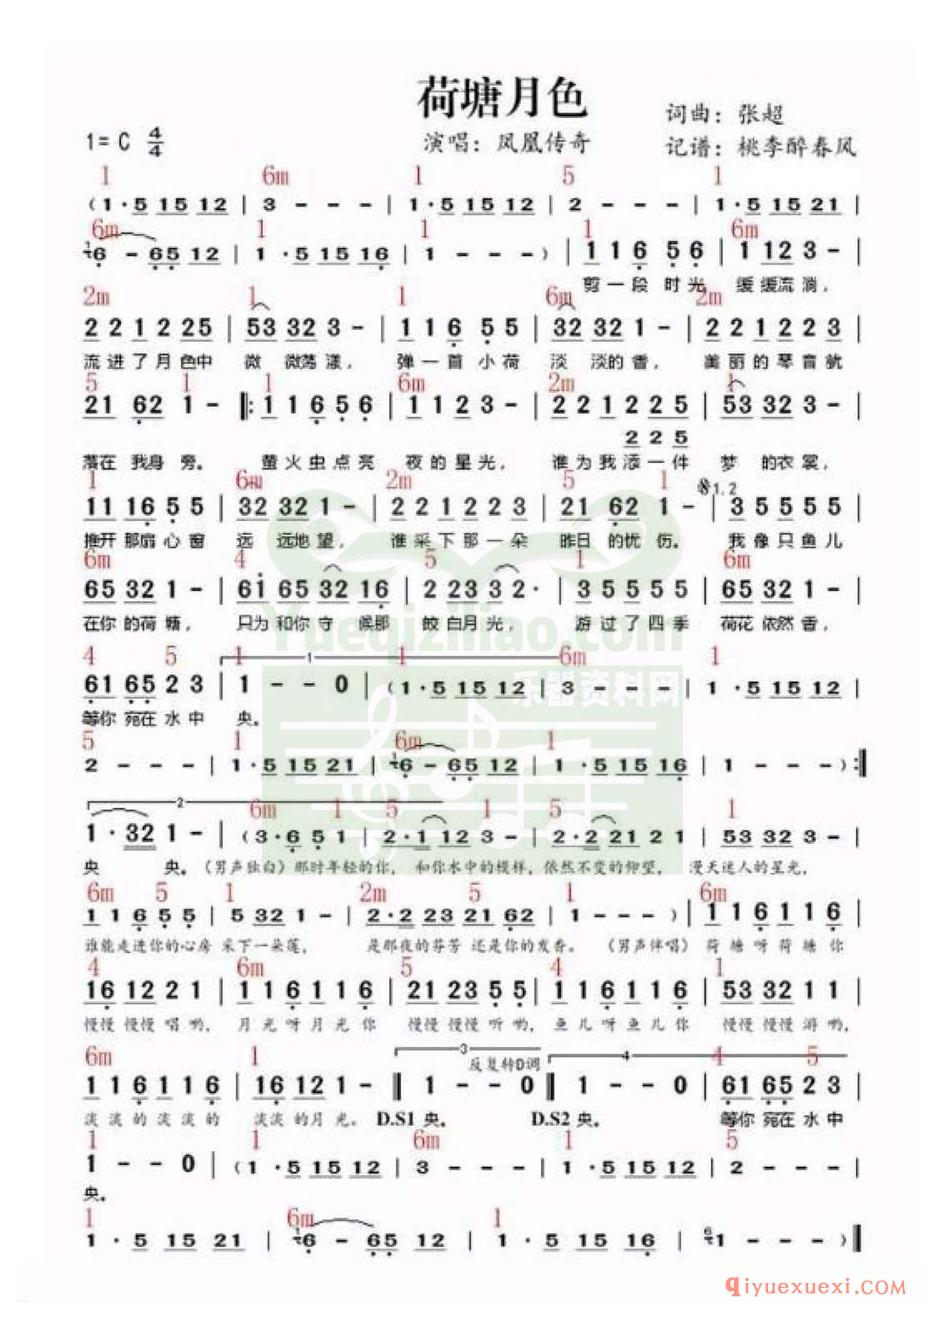 荷塘月色
词曲：张超
1= C 4/4
演唱：凤凰传奇
记谱：桃李醉春风
1 6m 1 5 1
( 1 · 5 1 5 1 2 | 3 - - - | 1 · 5 1 5 1 2 | 2 - - - | 1 · 5 1 5 2 1 |
6m 1 1 1 6m
6 - 6 5 1 2 | 1 · 5 1 5 1 6 | 1 - - - ) | 1 1 6 5 6 | 1 1 2 3 - |
剪一段 时光 缓缓流淌，
2m 1 1 6m 2m
2 2 1 2 2 5 | 5 3 3 2 3 - | 1 1 6 5 5 | 3 2 3 2 1 - | 2 2 1 2 2 3 |
流进了月色中 微 微荡漾， 弹一首 小荷 淡 淡的香， 美丽的琴音就
5 1 1 6m 2m 1
2 1 6 2 1 - ‖: 1 1 6 5 6 | 1 1 2 3 - | 2 2 1 2 2 5 | 5 3 3 2 3 - |
2 2 5
落在 我身 旁。 萤火虫点亮 夜的星光， 谁为我添一件 梦 的衣裳，
1 6m 2m 5 1 1.2
1 1 1 6 5 5 | 3 2 3 2 1 - | 2 2 1 2 2 3 | 2 1 6 2 1 - | 3 5 5 5 5 |
推开 那扇 心窗 远 远地望， 谁采下那一朵 昨日 的忧 伤。 我像只鱼儿
6m 4 5 1 6m
6 5 3 2 1 - | 6 1 6 5 3 2 1 6 | 2 2 3 3 2 · | 3 5 5 5 5 | 6 5 3 2 1 - |
在你 的荷 塘， 只为 和你 守 候那 皎白月光， 游过了四季 荷花 依然 香，
4 5 1 1 1 6m 1
6 1 6 5 2 3 | 1 - - 0 | ( 1 · 5 1 5 1 2 | 3 - - - | 1 · 5 1 5 1 2 |
等你 宛在 水中 央。
5 1 6m 1
2 - - - | 1 · 5 1 5 2 1 | 6 - 6 5 1 2 | 1 · 5 1 5 1 6 | 1 - - - ) :‖
2 6m 1 5 1 5 1
1 · 3 2 1 - | ( 3 · 6 5 1 | 2 · 1 1 2 3 | 2 · 2 2 1 2 1 | 5 3 3 2 3 - |
央 央。（男声独白）那时年轻的你， 和你水中的模样，依然不变的仰望， 漫天迷人的星光，
6m 5 1 2m 5 1 6m
1 1 6 5 5 | 5 3 2 1 - | 2 · 2 2 3 2 1 6 2 | 1 - - ) | 1 1 6 1 1 6 |
谁能走进你的心房 采下一朵莲， 是那夜的芬芳 还是你的发香。（男声伴唱） 荷 塘 呀 荷 塘 你
4 6m 5 4 1
1 6 1 2 2 1 | 1 1 6 1 1 6 | 2 1 2 3 5 5 | 1 1 6 1 1 6 | 5 3 3 2 1 1 |
慢慢 慢慢 唱 哟， 月 光 呀 月 光 你 慢慢 慢慢 听 哟， 鱼 儿 呀 鱼 儿 你 慢慢 慢慢 游 哟，
6m 1 3 反复转D调 4 4 5
1 1 6 1 1 6 | 1 6 1 2 1 - ‖ 1 - - 0 ‖ 1 - - 0 | 6 1 6 5 2 3 |
淡 淡 的 淡 淡 的 淡 淡 的 月 光。 D.S1 央。 D.S2 央。 等你 宛在 水中
1 1 6m 1 5
1 - - 0 | ( 1 · 5 1 5 1 2 | 3 - - - | 1 · 5 1 5 1 2 | 2 - - - |
央。
1 6m 1
1 · 5 1 5 2 1 | 6 - 6 5 1 2 | 1 · 5 1 5 1 6 | 1 - - - ) ‖
Yueqiziliao.com
乐器资料网
qiyuexuexi.COM